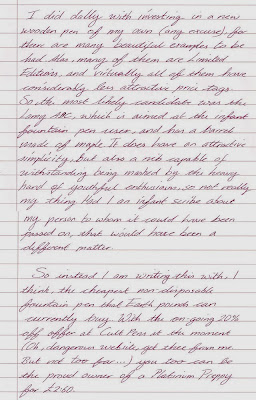 I did dally with investing in a new
wooden pen of my own (any excuse), for
there are many beautiful examples to be
had. Alas, many of them are Limited
Editions, and virtually all of them have
considerably less attractive price tags.
So, the most likely candidate was the
Lamy ABC, which is aimed at the infant
fountain pen user, and has a barrel
made of maple. It does have an attractive
simplicity, but also a nib capable of
withstanding being mashed by the heavy
hand of youthful enthusiasm, so not really
my thing. Had I an infant scribe about
my person to whom it could have been
passed on, that would have been a
different matter.
So instead I am writing this with, I
think, the cheapest non disposable
fountain pen that Earth pounds can
currently buy. With the on-going 20%
off offer at Cult Pens at the moment
(Oh, dangerous website, get thee from me.
But not too far...) you too can be
the proud owner of a Platinum Preppy
for £2.60.